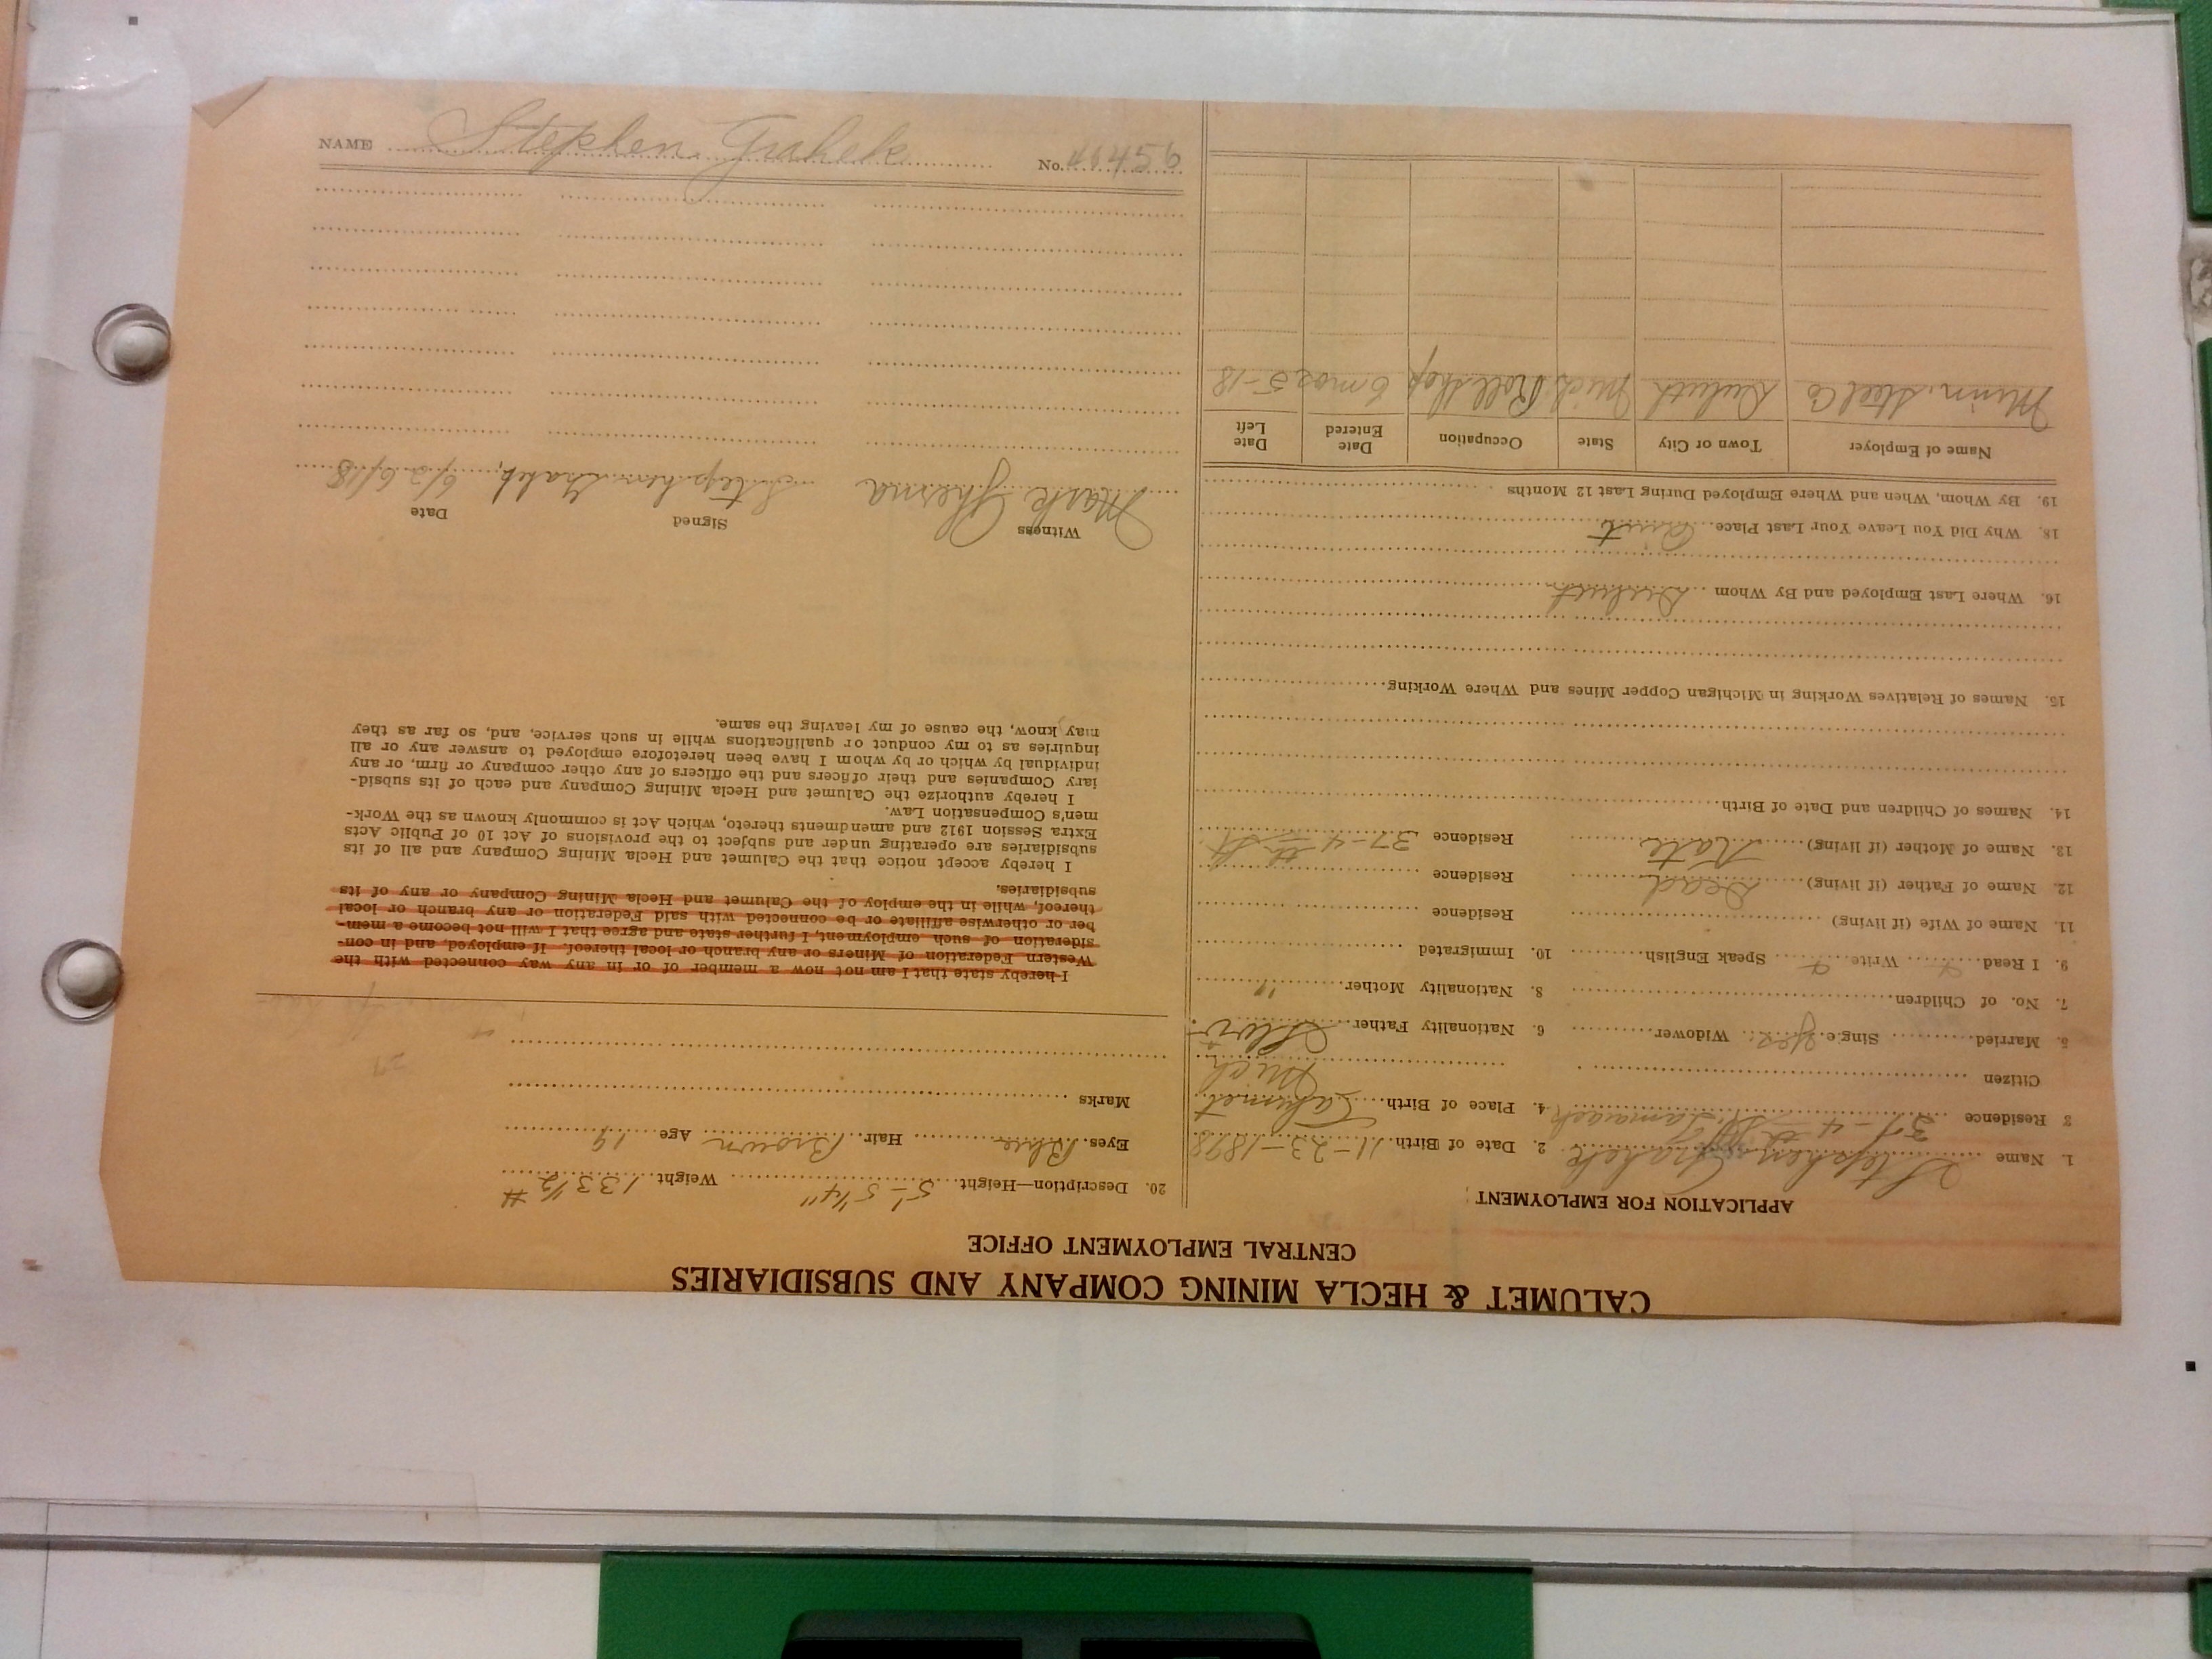 CALUMET & HECLA MINING COMPANY AND SUBSIDIARIES
CENTRAL EMPLOYMENT OFFICE
APPLICATION FOR EMPLOYMENT
1. Name Stephen Grahek 2. Date of Birth 11-23-1898
3 Residence 37-4th St Tamarack 4. Place of Birth Calumet
Citizen Mich
5. Married Sing.e yes Widower 6. Nationality Father Slov
7. No. of Children 8. Nationality Mother "
9. I Read Write Speak English 10. Immigrated
11. Name of Wife (if living) Residence
12. Name of Father (if living) Dead Residence
13. Name of Mother (if living) Kate Residence 37-4th St
14. Names of Children and Date of Birth
15. Names of Relatives Working in Michigan Copper Mines and Where Working
16. Where Last Employed and By Whom Duluth
18. Why Did You Leave Your Last Place Quit
19. By Whom, When and Where Employed During Last 12 Months
Name of Employer Town or City State Occupation Date Entered Date Left
Minn. Steel Co Duluth Mich Roll shop 6 mos 5-18
20. Description—Height 5'-5 1/4" Weight 133 1/2 #
Eyes Blue Hair Brown Age 19
Marks
I hereby state that I am not now a member of or in any way connected with the
Western Federation of Miners or any branch or local thereof. If employed, and in con-
sideration of such employment, I further state and agree that I will not become a mem-
ber or otherwise affiliate or be connected with said Federation or any branch or local
thereof, while in the employ of the Calumet and Hecla Mining Company or any of its
subsidiaries.
I hereby accept notice that the Calumet and Hecla Mining Company and all of its
subsidiaries are operating under and subject to the provisions of Act 10 of Public Acts
Extra Session 1912 and amendments thereto, which Act is commonly known as the Work-
men's Compensation Law.
I hereby authorize the Calumet and Hecla Mining Company and each of its subsid-
iary Companies and their officers and the officers of any other company or firm, or any
individual by which or by whom I have been heretofore employed to answer any or all
inquiries as to my conduct or qualifications while in such service, and, so far as they
may know, the cause of my leaving the same.
Witness Signed Date
Mark Stephen Grahek, 6/26/18
NAME Stephen Grahek No. 456